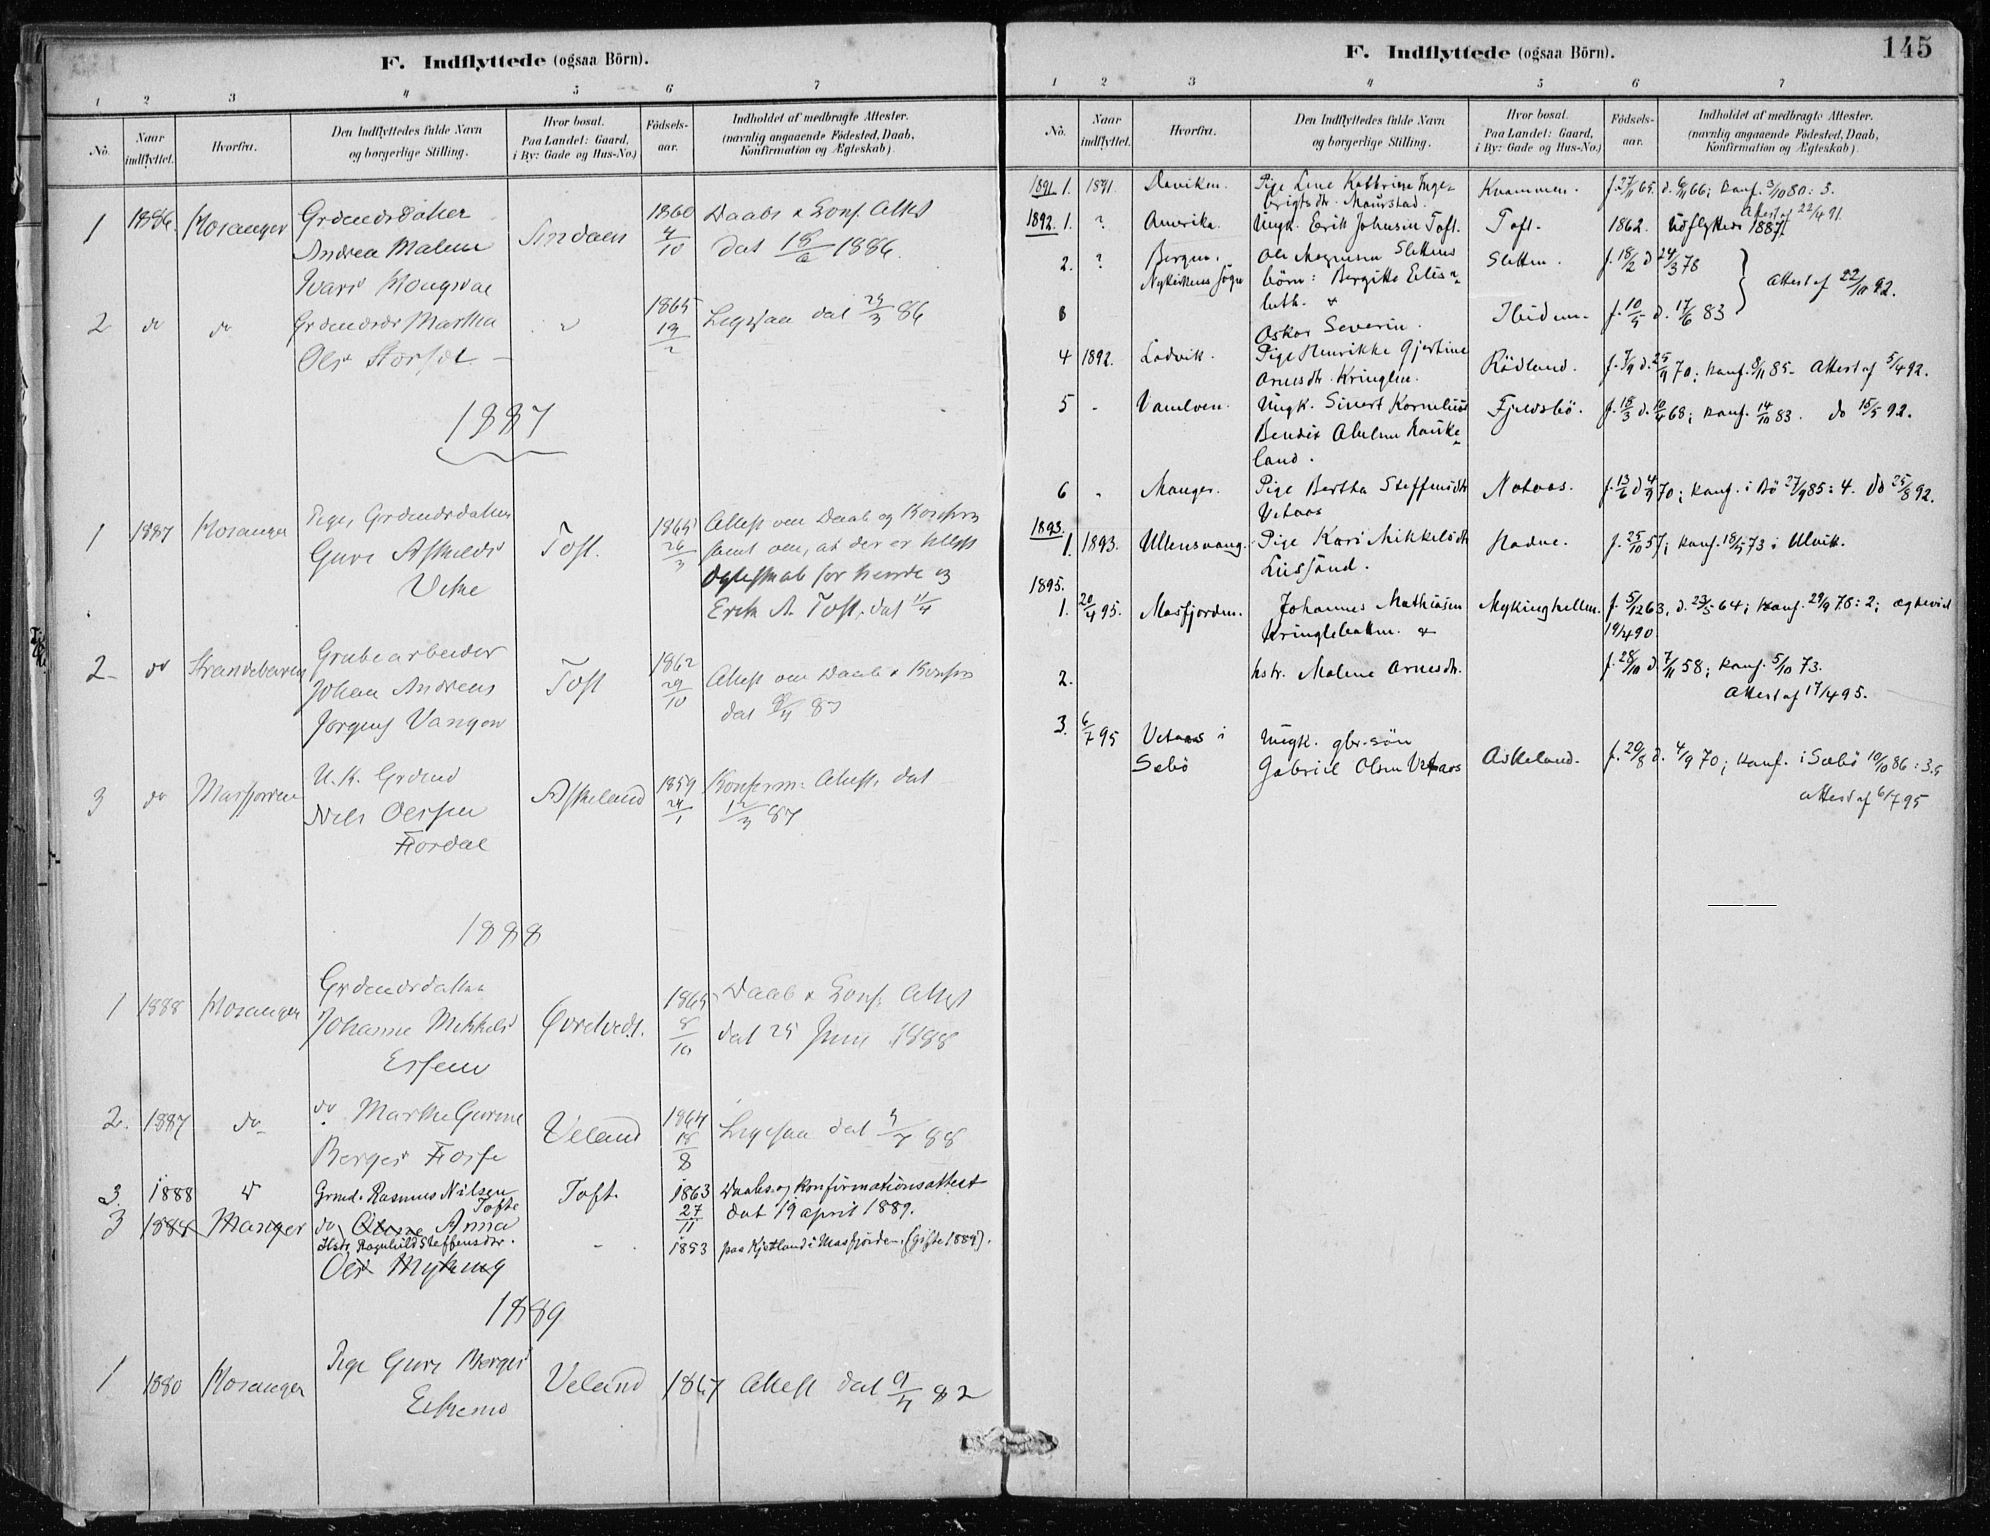 F. Indflyttede (ogsaa Börn).
1 2 3 4 5 6 7
No.
Naar indflyttet.
Hvorfra.
Den Indflyttedes fulde Navn og borgerlige Stilling.
Hvor bosat. Paa Landet: Gaard, i By: Gade og Hus-No.)
Födsels-aar.
Indholdet af medbragte Attester. (navnlig angaaende Födested, Daab, Konfirmation og Ægteskab).
1 1886. Hosanger
Andrea Malene
1860 4/10
Daabs & Conf. Attest
dat 18/6 1886.
2 do do
Martha
1865 13/2
Ligesaa dat 29/3 86
1887
1 1887 Hosanger
Pige,
Guri Askelds
Toft.
1865 26/3
Attest om Daab og Konfirm
samt om, at der er tillyst
Ægteskab for hende og
Erik A. Toft, dat 11/4
2 do Strandebarm
Grubearbeider
Johan Andreas
Jörgens Vangen
Toft
1862 29/10
Attest om Daab & Konfirm
3 do Masfjorden
U.K. Grdmd
Nils Olssen
Fiordal
Askeland
1859 24/1
Konfirm: Attest, dat
12/3 87
1888
1 1888 Hosanger
Johanne Mikkelsd
1865 8/10
Daab & Conf. Attest
dat 25 Juni 1888
2. 1887 do
do Marthe Gurine
Berges Fosse
Veland
1864 18/8
Ligesaa dat 88
3 1888
Grmd. Rasmus Nilsen
Tofte
Toft.
1863 27/11
Daabs og konfirmationsattest
dat 19 april 1889.
3 1888 Manger
do Anna
Hstr. Ragnhild Steffensdtr.
1853
paa Kjetland i Masfjorden. (gifte 1889).
Ols Myking
1889
1 1880 Hosanger
Pige Guri Berges
Veland
1867
Attest dat 82
F. Indflyttede (ogsaa Börn).
145
1 2 3 4 5 6 7
No.
Naar indflyttet.
Hvorfra.
Den Indflyttedes fulde Navn og borgerlige Stilling.
Hvor bosat. Paa Landet: Gaard, i By: Gade og Hus-No.)
Födsels-aar.
Indholdet af medbragte Attester. (navnlig angaaende Födested, Daab, Konfirmation og Ægteskab).
1891. 1. 1891. Daviken. Pige Line Kathrine Inge-
brigtsdtr. Maurstad.
Kvammen. f. 27/11 65. d. 6/11 66; konf. 3/10 80: 3.
Attest af 22/4 91.
1892. 1. ? Amerika. Ungk. Erik Johnsen Toft. Toft. 1862. Udflyttede 1887.
2. ? Bergen, Nykirkens Sogn
Ole Magnusen Slettens
börn: Bergitte Elisa-
beth. &
Sletten. f. 18/2 d. 24/3 78
Attest af 22/10 92.
3 Oskar Severin. Ibidem. f. 10/5 d. 17/6 83
4 1892. Ladvik. Pige Henrikke Gjertine
Arnesdtr. Kringlen.
Rödland. f. 7/9 d. 25/9 70; konf. 8/11 85. Attest af 5/4 92.
5 - Vanelven. Ungk. Sivert Kornelius
Bendix Abelsen Hauke-
land.
Fjeldsbö. f. 18/3 d. 10/4 68; konf. 14/10 83. do 15/5 92.
6 - Manger. Pige Bertha Steffensdtr
Vetaas
Notaas. f. 13/2 d. 4/9 70; konf. i Bö 27/9 85: 4. do 25/8 92.
1893.
1. 1893. Ullensvang. Pige Kari Mikkelsdtr
Hadne. f. 25/10 57; konf. 18/5 73 i Ulvik.
1895.
1. 20/4 95. Masfjorden. Johannes Mathiasen
Kringlebotten. &
Mykinghellen. f. 5/12 63, d. 23/5 64; konf. 29/9 78: 2; ægteviet
19/4 90.
2. hstr. Malene Arnesdtr. f. 28/10 d. 7/11 58; konf. 5/10 73.
Attest af 17/4 95.
3. 6/7 95 Vetaas i
Sæbö
Ungk. gbr.sön
Gabriel Olsen Vetaas
Askeland. f. 20/8 d. 4/9 70; konf. i Sæbö 10/10 86: 3.5
attest af 6/7 95